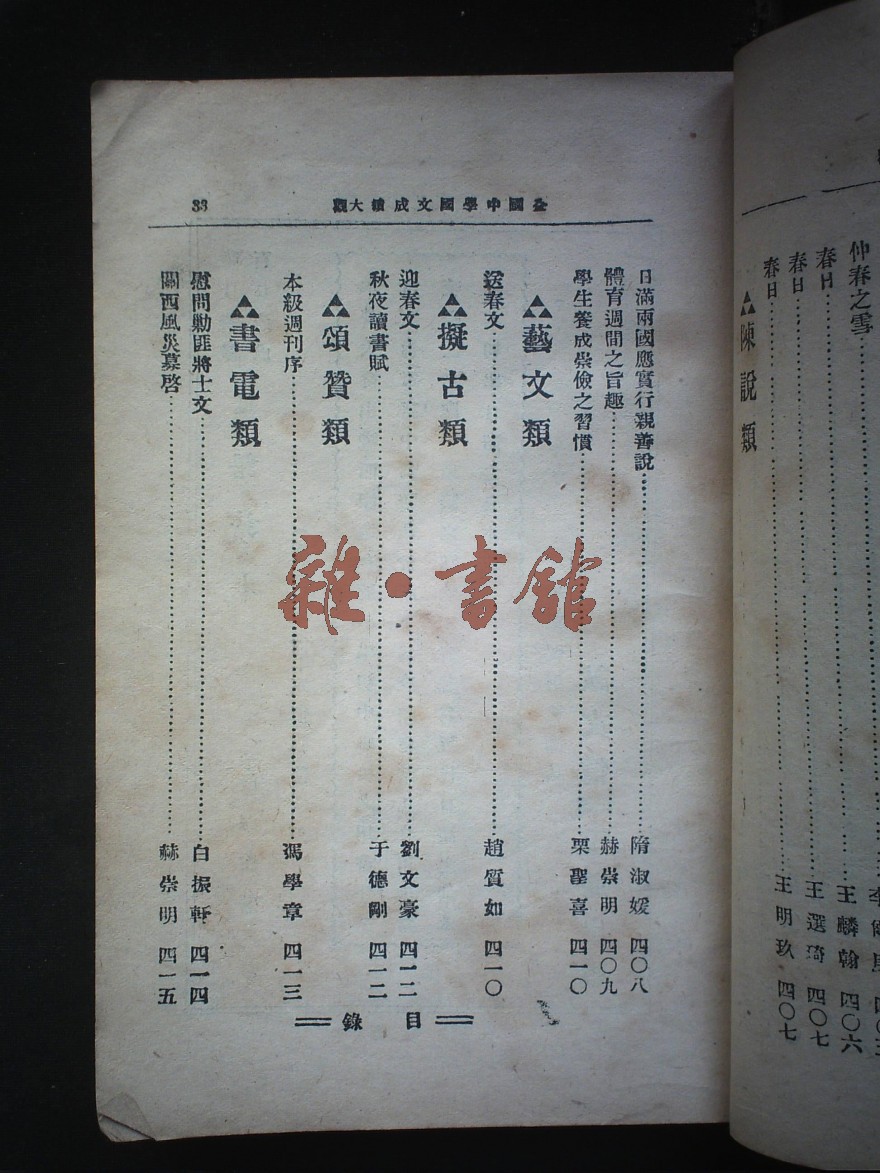 仲春之雪
春日……王麟翰 四〇六
春日……王選琦 四〇七
春日……王明玖 四〇七
▲陳說類
全國中學國文成績大觀
33
日滿兩國應實行親善說……隋淑媛 四〇八
體育週間之旨趣……赫崇明 四〇九
學生養成崇儉之習慣……栗聖喜 四一〇
▲藝文類
送春文……趙質如 四一〇
▲擬古類
迎春文……劉文豪 四一二
秋夜讀書賦……于德剛 四一二
▲頌贊類
本級週刊序……馮學章 四一三
▲書電類
慰問勦匪將士文……白振軒 四一四
關西風災募啓……赫崇明 四一五
目錄
雜·書館